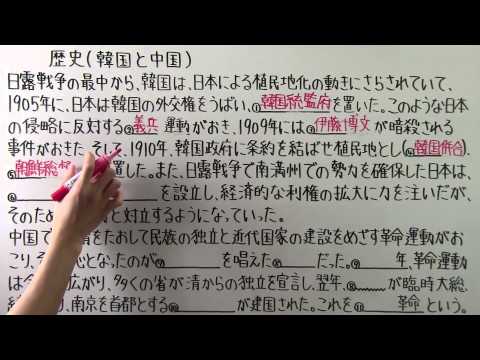 歴史(韓国と中国)
日露戦争の最中から、韓国は、日本による植民地化の動きにさらされていて、
1905年に、日本は韓国の外交権をうばい、①韓国統監府を置いた。このような日本
の侵略に反対する②義兵運動がおき、1909年には③伊藤博文が暗殺される
事件がおきた。そして、1910年、韓国政府に条約を結ばせ植民地とし(④韓国併合)、
朝鮮総 置した。また、日露戦争で南満州での勢力を確保した日本は、
を設立し、経済的な利権の拡大に力を注いだが、
そのため と対立するようになっていった。
中国で をたおして民族の独立と近代国家の建設をめざす革命運動がお
こり、そ 心となったのが を唱えた だった。 年、革命運動
は 広がり、多くの省が清からの独立を宣言し、翌年、 が臨時大総
南京を首都とする が建国された。これを 革命という。